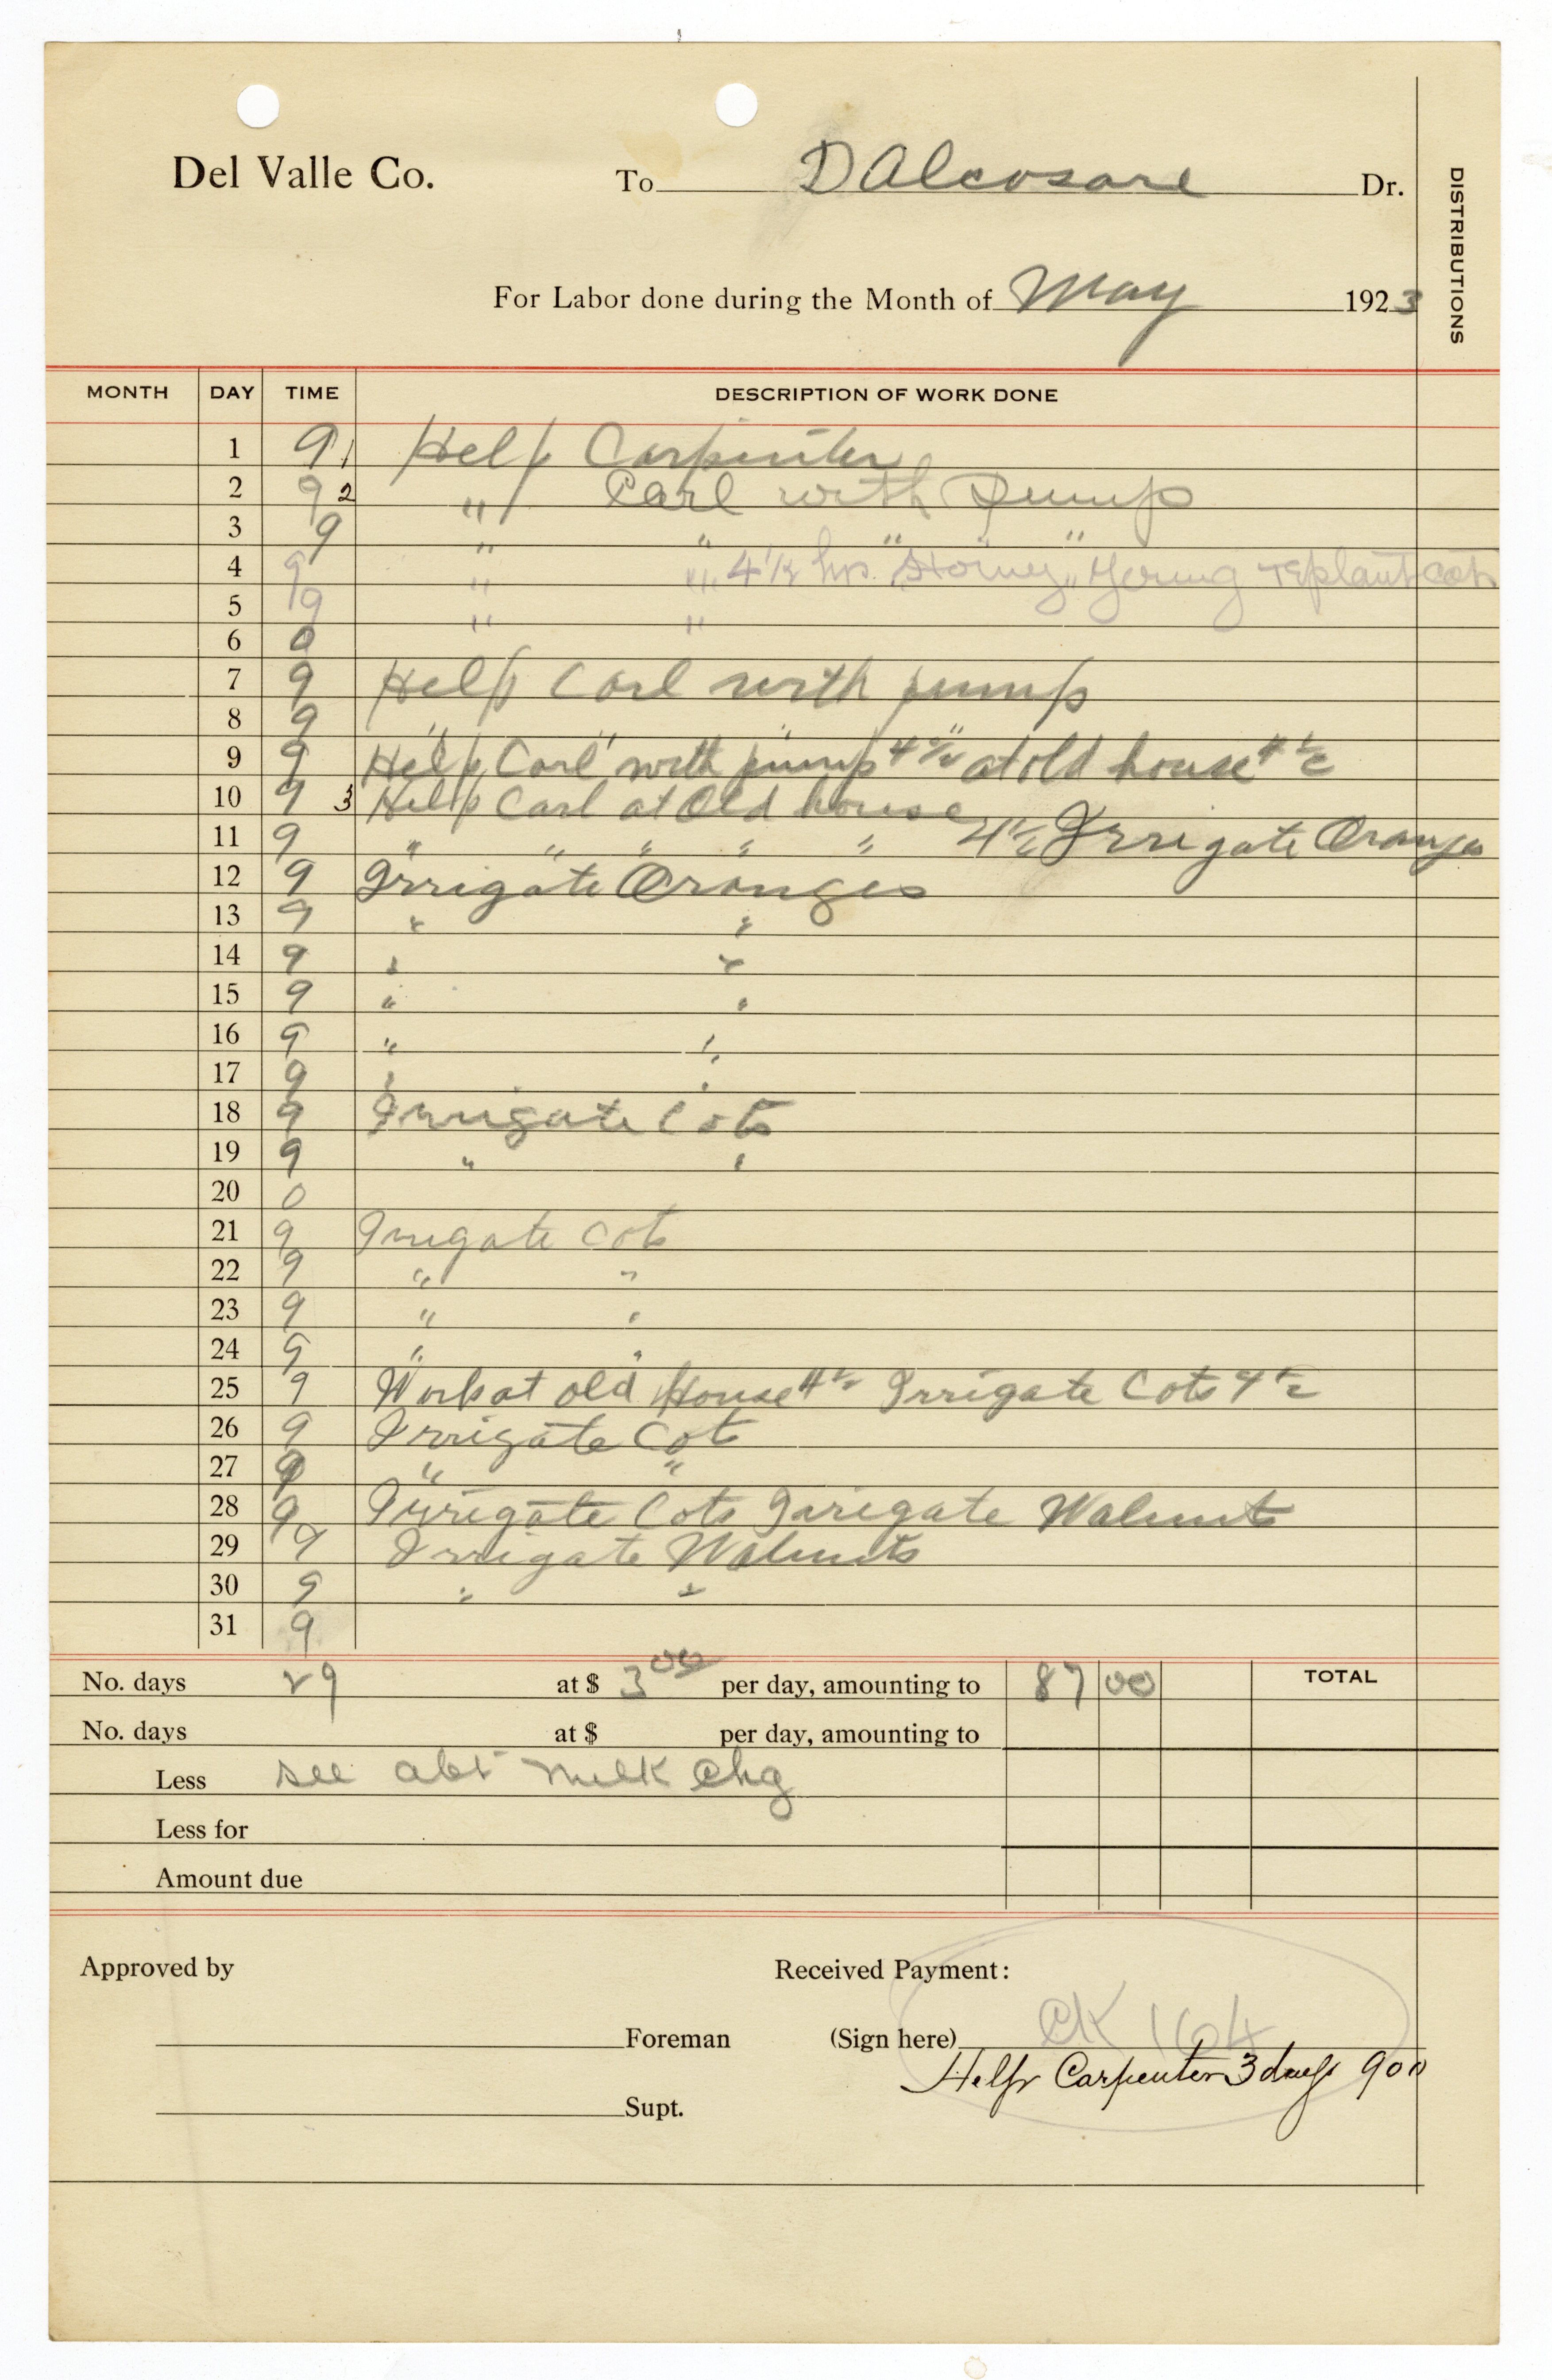 Del Valle Co. To D Alcosare Dr.
DISTRIBUTIONS
For Labor done during the Month of May 1923
MONTH DAY TIME DESCRIPTION OF WORK DONE
1 9 1 Help Carpinter
2 9 2 " Carl with Pump
3 9 " " " "
4 9 " " 4 1/2 hrs. Young replant cots
5 9 " "
6 0
7 9 Help Carl with pump
8 9 " " " "
9 9 Help Carl with pump 4 1/2 at old house 4 1/2
10 9 3 Help Carl at Old house
11 9 " " " " " 4 1/2 Irrigate Oranges
12 9 Irrigate Oranges
13 9 " "
14 9 " "
15 9 " "
16 9 " "
17 9 " "
18 9 Irrigate Cots
19 9 " "
20 0
21 9 Irrigate Cots
22 9 " "
23 9 " "
24 9 " "
25 9 Work at old House 4 1/2 Irrigate Cots 4 1/2
26 9 Irrigate Cots
27 9 " "
28 9 Irrigate Cots Irrigate Walnuts
29 9 Irrigate Walnuts
30 9 " "
31 9
No. days 29 at $ 3 00 per day, amounting to 87 00 TOTAL
No. days at $ per day, amounting to
Less see abt milk chg
Less for
Amount due
Approved by Received Payment:
Foreman (Sign here) CK 164
Help Carpenter 3 days 9 00
Supt.